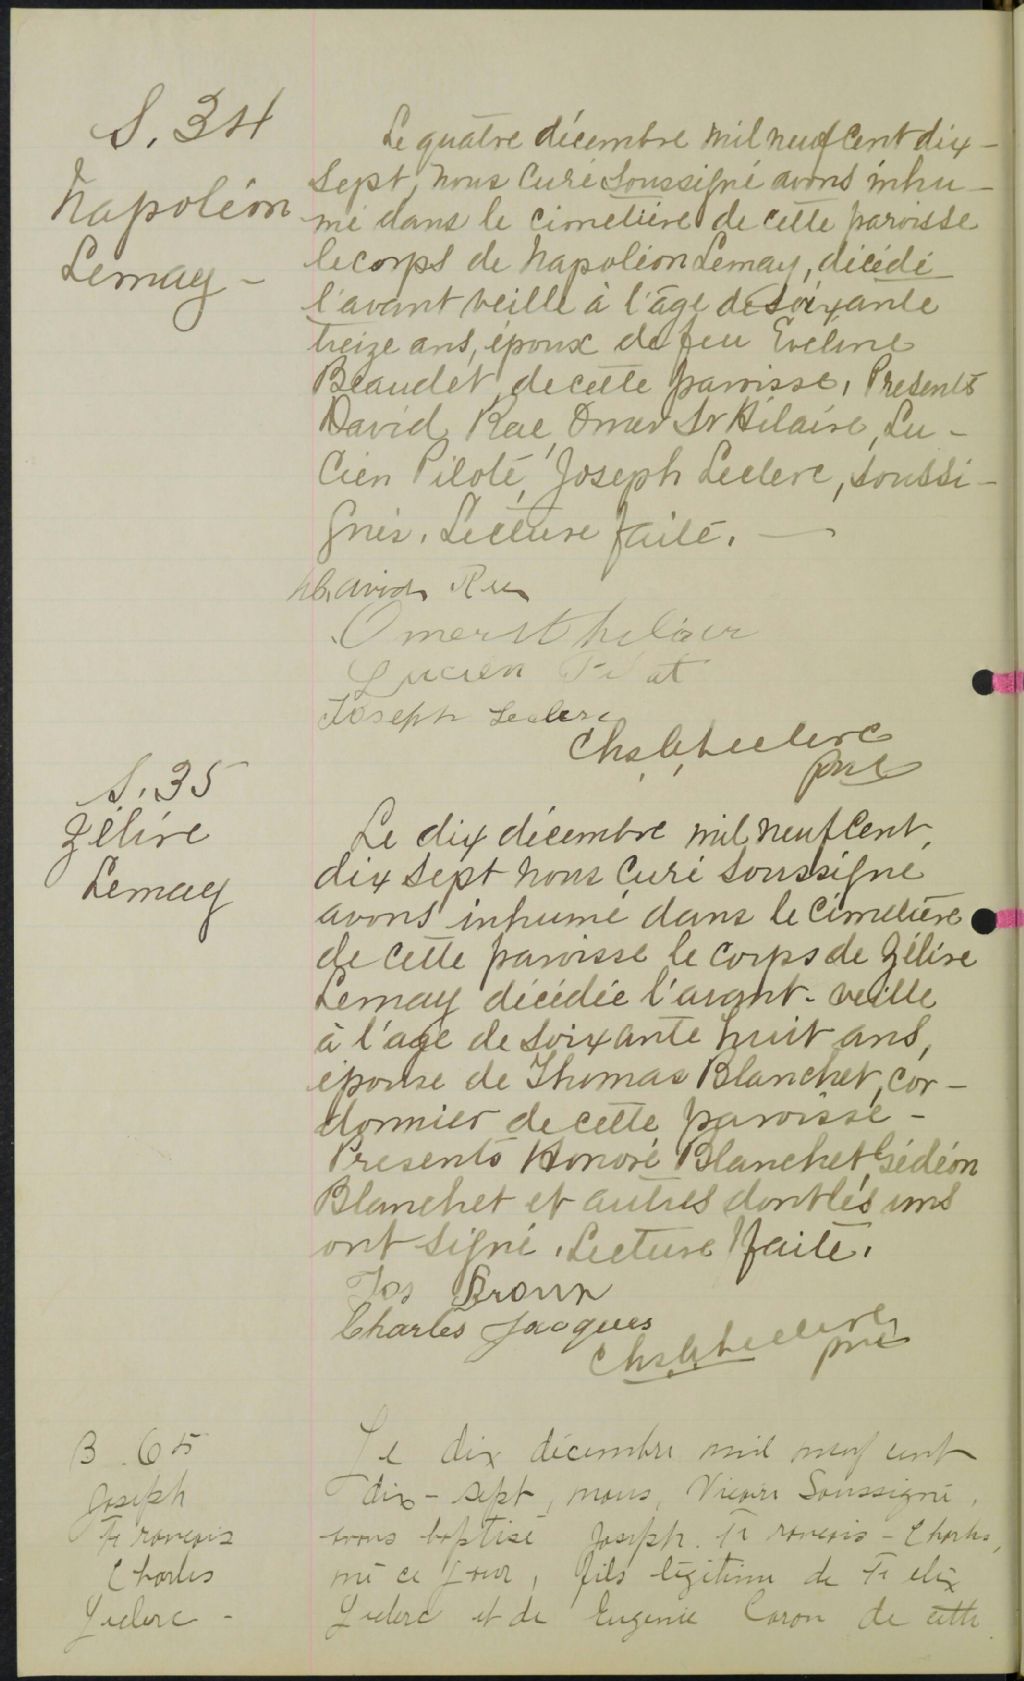 S. 34
Napoléon
Lemay -
Le quatre décembre mil neuf cent dix-
sept, nous Curé Soussigné avons inhu-
mé dans le cimetière de cette paroisse
le corps de Napoléon Lemay, décédé
l'avant veille à l'âge de soixante
treize ans, époux de feu Eveline
Beaudet, de cette paroisse. Présents
David Rae, Omer St Hilaire, Lu-
cien Pilote, Joseph Leclerc, soussi-
gnés. Lecture faite. —
David Rae
Omer St hilair
Lucien
Joseph Leclerc
Leclerc
ptre
S. 35
Zélire
Lemay
Le dix décembre mil neuf cent
dix sept nous Curé soussigné
avons inhumé dans le cimetière
de cette paroisse le corps de Zélire
Lemay décédée l'avant-veille
à l'age de soixante huit ans,
épouse de Thomas Blanchet, cor-
donnier de cette paroisse -
Présents Honoré Blanchet, Gédéon
Blanchet et autres dont les uns
ont signé. Lecture faite.
Jos Broun
Charles Jacques
Leclerc
ptre
B. 65
Joseph
François
Charles
Leclerc -
Le dix décembre mil neuf cent
dix-sept, nous, Vicaire Soussigné,
avons baptisé Joseph. François-Charles,
né ce jour, fils légitime de Félix
Leclerc et de Eugenie Caron de cette